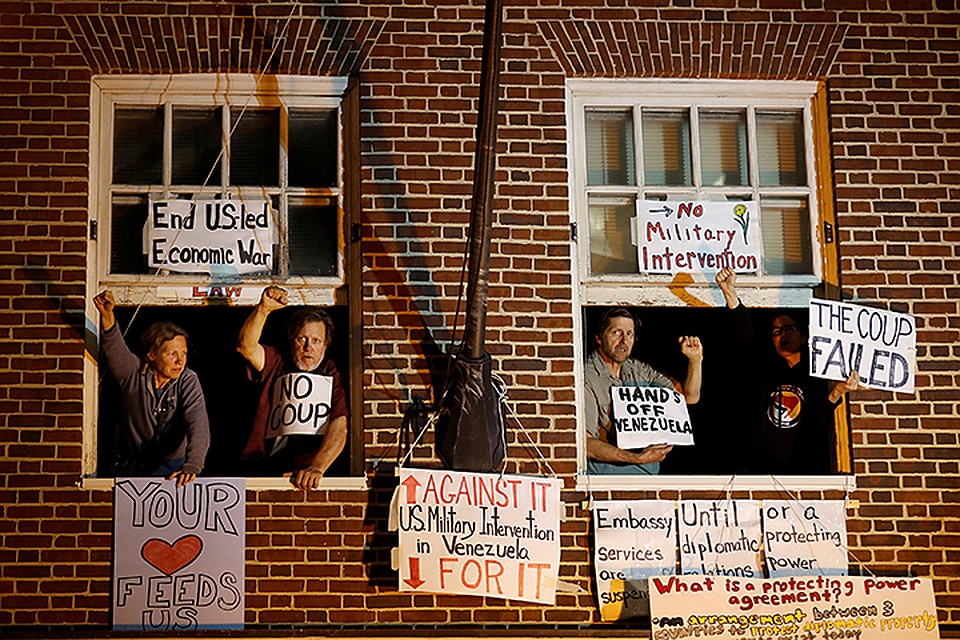 End US-led
Economic War
LAW
→ No
Military
Intervention
THE COUP
FAILED
NO
COUP
HANDS
OFF
VENEZUELA
YOUR
FEEDS
US
↑ AGAINST IT
U.S. Military Intervention
in Venezuela
↓ FOR IT
Embassy
services
are
Until
diplomatic
relations
or a
protecting
power
What is a protecting power
agreement?
An arrangement between 3
countries to protect diplomatic property